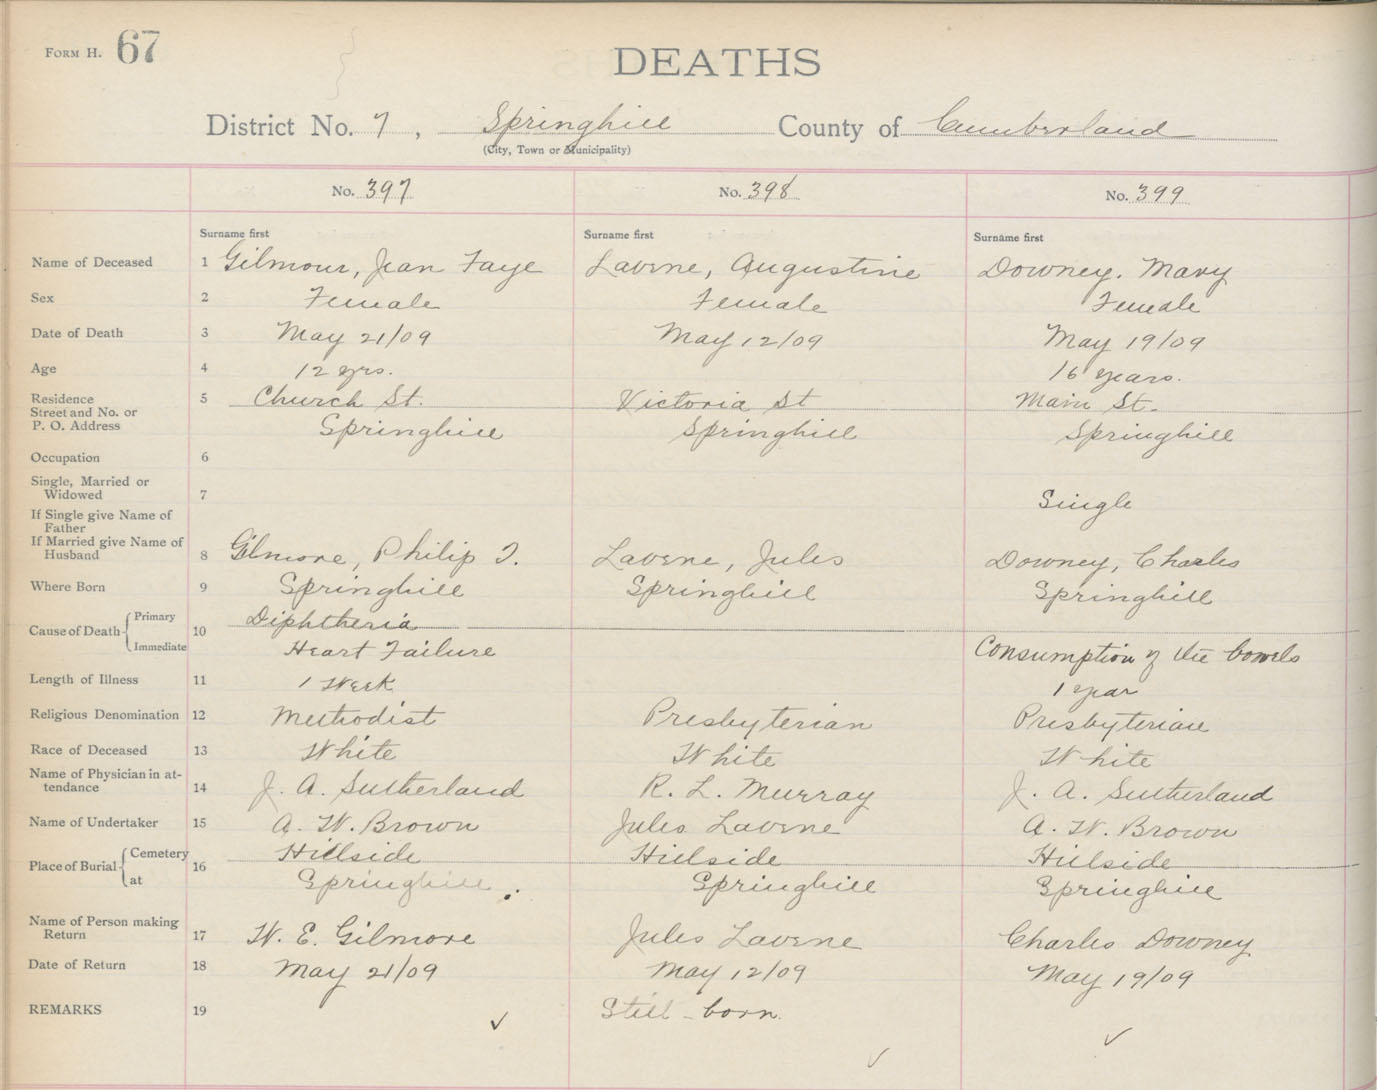 FORM H. 67
DEATHS
District No. 7, Springhill County of Cumberland
(City, Town or Municipality)
No. 397 No. 398 No. 399
Surname first Surname first Surname first
Name of Deceased 1 Gilmour, Jean Faye Laverne, Augustine Downey. Mary
Sex 2 Female Female Female
Date of Death 3 May 21/09 May 12/09 May 19/09
Age 4 12 yrs. 16 years.
Residence 5 Church St. Victoria St Main St.
Street and No. or
P. O. Address Springhill Springhill Springhill
Occupation 6
Single, Married or
Widowed 7 Single
If Single give Name of
Father
If Married give Name of
Husband 8 Gilmore, Philip T. Laverne, Jules Downey, Charles
Where Born 9 Springhill Springhill Springhill
Cause of Death { Primary 10 Diphtheria
Immediate Heart Failure Consumption of the bowels
Length of Illness 11 1 Week 1 year
Religious Denomination 12 Methodist Presbyterian Presbyterian
Race of Deceased 13 White White White
Name of Physician in at-
tendance 14 J. A. Sutherland R. L. Murray J. A. Sutherland
Name of Undertaker 15 A. W. Brown Jules Laverne A. W. Brown
Place of Burial { Cemetery 16 Hillside Hillside Hillside
at Springhill. Springhill Springhill
Name of Person making
Return 17 W. E. Gilmore Jules Laverne Charles Downey
Date of Return 18 May 21/09 May 12/09 May 19/09
REMARKS 19 Still-born.